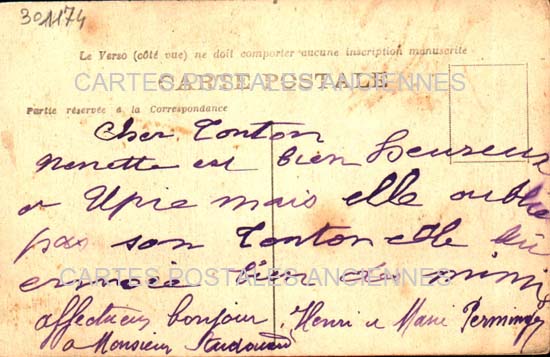 301174
Le Verso (côté vue) ne doit comporter aucune inscription manuscrite
CARTES POSTALES ANCIENNES
CARTE POSTALE
Partie réservée à la Correspondance
Cher Tonton
Nenette est bien heureux
a Upie mais elle oublie
pas son Tonton elle lui
envoie bien de mimi
CARTES POSTALES ANCIENNES
affectueux bonjour. Henri et Marie
a Monsieur